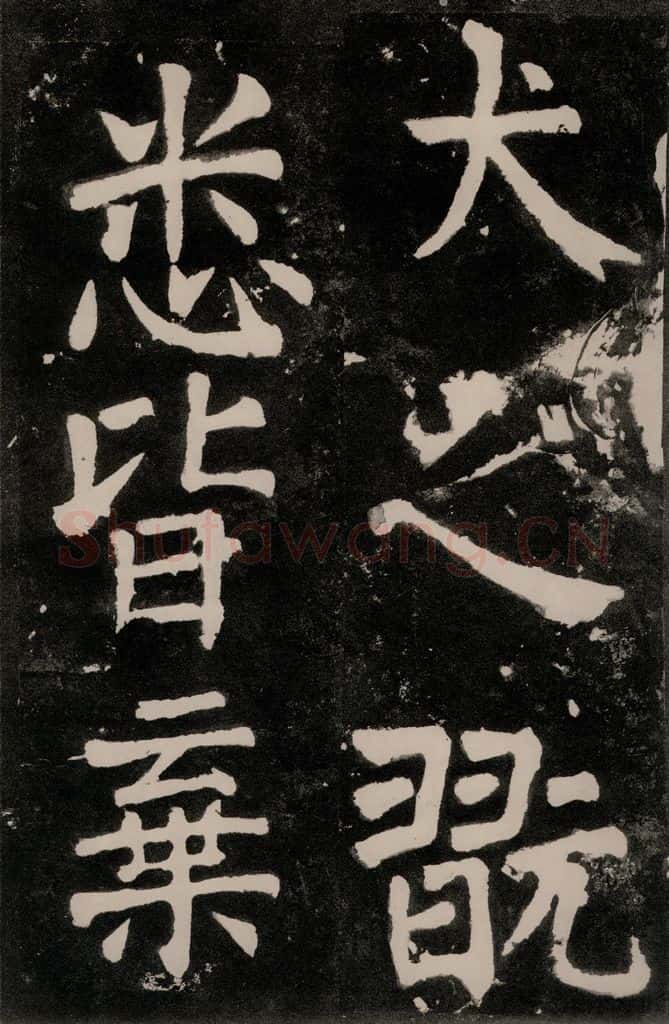 犬之翫
悉皆棄
Shufawang.CN